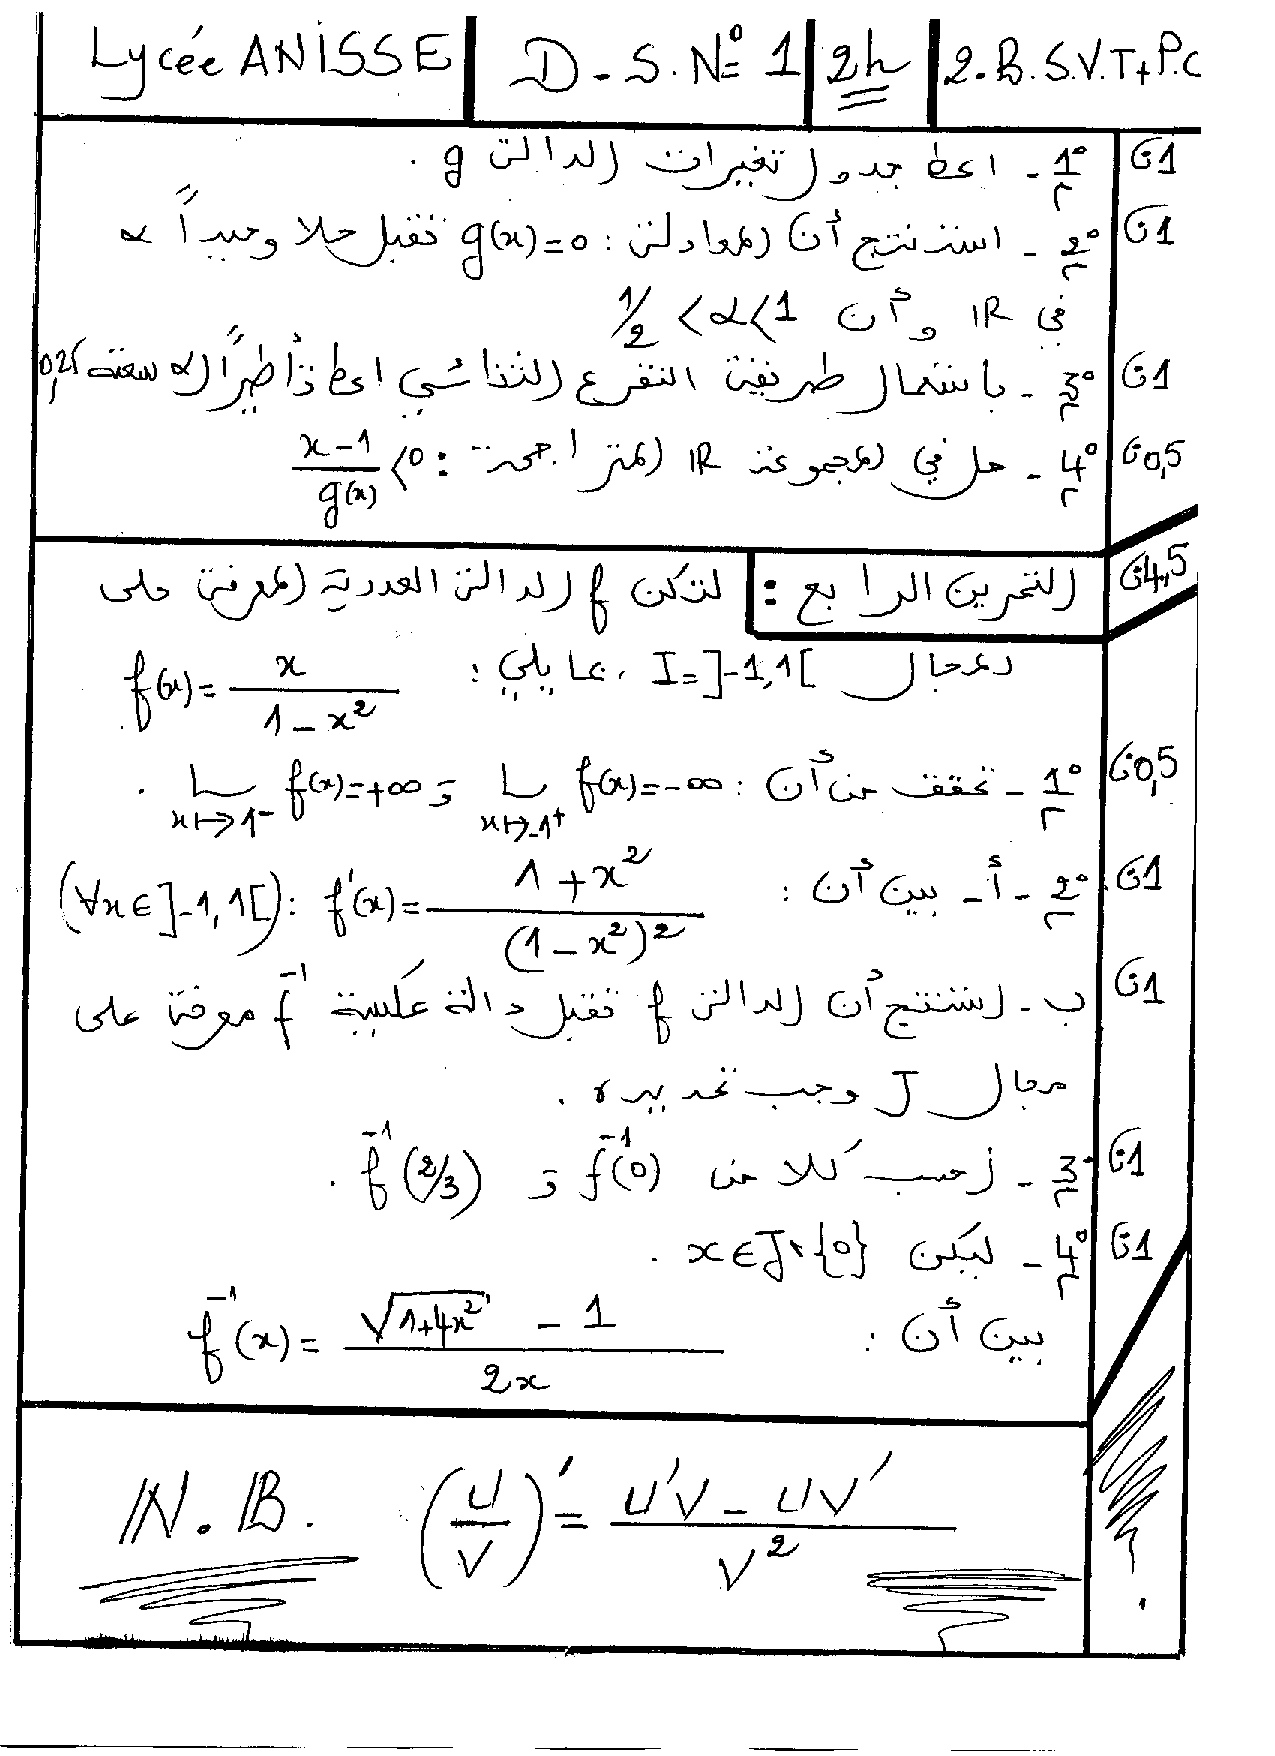 Lycée ANISSE | D.S.N° 1 | 2h | 2.B.S.V.T+P.C
1° - اعط جدول تغيرات الدالة g . 1
2° - استنتج أن المعادلة : g(x)=0 تقبل حلا وحيداً α 1
في IR وأن 1/2 < α < 1
3° - باستعمال طريقة التفرع الثنائي اعط تأطيراً لـ α سعته 0,25 1
4° - حل في المجموعة IR المتراجحة : (x-1)/g(x) < 0 0,5
التمرين الرابع : لتكن f الدالة العددية المعرفة على 4,5
المجال I=]-1,1[ ، بما يلي : f(x) = x/(1-x²)
1° - تحقق من أن : Lim x→-1⁺ f(x)=-∞ و Lim x→1⁻ f(x)=+∞ . 0,5
2° - أ - بين أن : (∀x∈]-1,1[): f'(x) = (1+x²)/(1-x²)² 1
ب - استنتج أن الدالة f تقبل دالة عكسية f⁻¹ معرفة على 1
مجال J وجب تحديده .
3° - أحسب كلا من f⁻¹(0) و f⁻¹(2/3) . 1
4° - ليكن x∈J\{0} . 1
بين أن : f⁻¹(x) = (√(1+4x²) - 1)/2x
N.B. (U/V)' = (U'V - UV')/V²